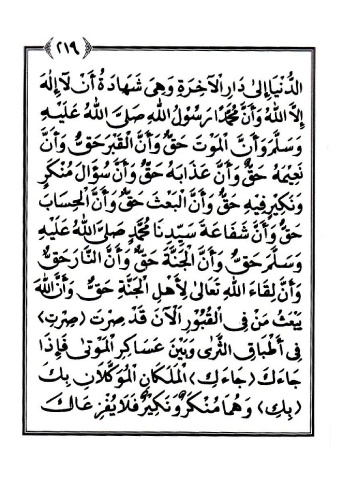 ﴿٢١٩﴾
الدُّنْيَا إِلىٰ دَارِ الْآخِرَةِ وَهِيَ شَهَادَةُ أَنْ لَآ إِلٰهَ
إِلَّا اللهُ وَأَنَّ مُحَمَّدًا رَسُوْلُ اللهِ صَلَّى اللهُ عَلَيْهِ
وَسَلَّمَ وَأَنَّ الْمَوْتَ حَقٌّ وَأَنَّ الْقَبْرَ حَقٌّ وَأَنَّ
نَعِيْمَهُ حَقٌّ وَأَنَّ عَذَابَهُ حَقٌّ وَأَنَّ سُؤَالَ مُنْكَرٍ
وَنَكِيْرٍ فِيْهِ حَقٌّ وَأَنَّ الْبَعْثَ حَقٌّ وَأَنَّ الْحِسَابَ
حَقٌّ وَأَنَّ شَفَاعَةَ سَيِّدِنَا مُحَمَّدٍ صَلَّى اللهُ عَلَيْهِ
وَسَلَّمَ حَقٌّ وَأَنَّ الْجَنَّةَ حَقٌّ وَأَنَّ النَّارَ حَقٌّ
وَأَنَّ لِقَاءَ اللهِ تَعَالىٰ لِأَهْلِ الْجَنَّةِ حَقٌّ وَأَنَّ اللهَ
يَبْعَثُ مَنْ فِى الْقُبُوْرِ الْآنَ قَدْ صِرْتَ (صِرْتِ)
فِى أَطْبَاقِ الثَّرٰى وَبَيْنَ عَسَاكِرِ الْمَوْتىٰ فَإِذَا
جَاءَكَ (جَاءَكِ) الْمَلَكَانِ الْمُوَكَّلَانِ بِكَ
(بِكِ) وَهُمَا مُنْكَرٌ وَنَكِيْرٌ فَلَا يُفْزِعَاكَ